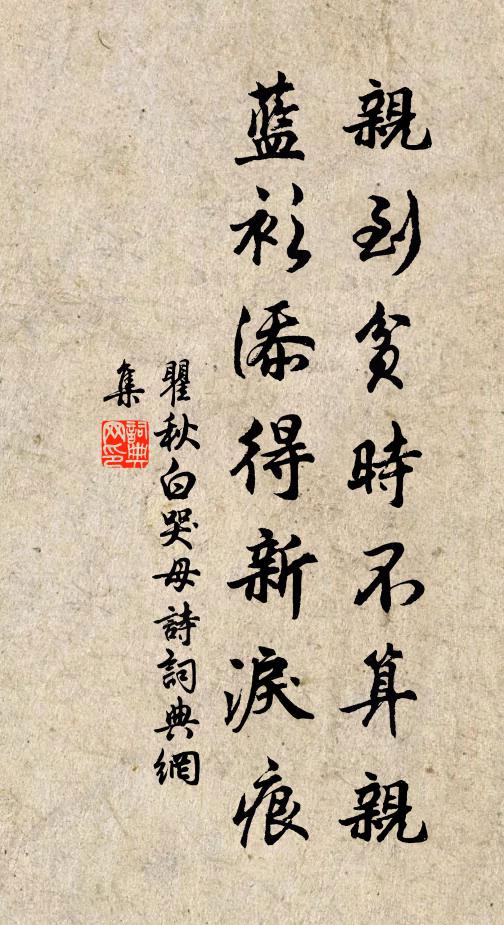 親到貧時不算親
藍衫添得新淚痕
瞿秋白哭母詩詞典網
集
詞典网印